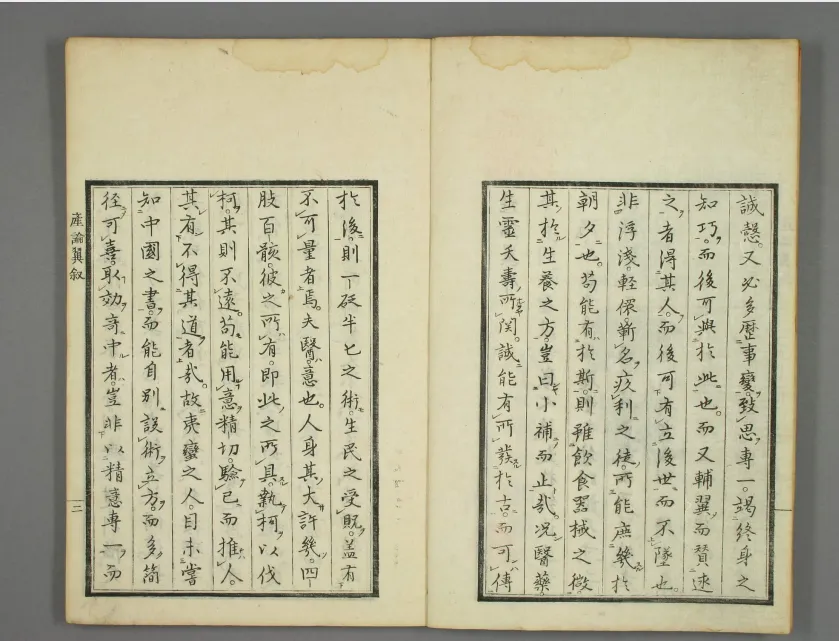 誠慤。又必多歷事變。致思專一。竭終身之
知巧。而後可與於此也。而又輔翼而賛述
之者得其人。而後可有立後世而不墜也。
非浮淺。輕儇新名。疚利之徒。所能庶幾於
朝夕也。苟能有於斯。則雖飲食器械之微
其於生養之方。豈曰小補而止哉。况醫藥
生靈夭壽所関。誠能有所發於古。而可傳
於後。則一砭半匕之術。生民之受貺。蓋有
不可量者焉。夫醫意也。人身其大許幾。四
肢百骸。彼之所有。即此之所具。執柯以伐
柯。其則不遠。苟能用意精切。驗已而推人。
其有不得其道者哉。故夷蠻之人。目未嘗
知中國之書。而能自別設術立方。而多簡
径可喜。取効奇中者。豈非以精意専一而
產論翼叙
三